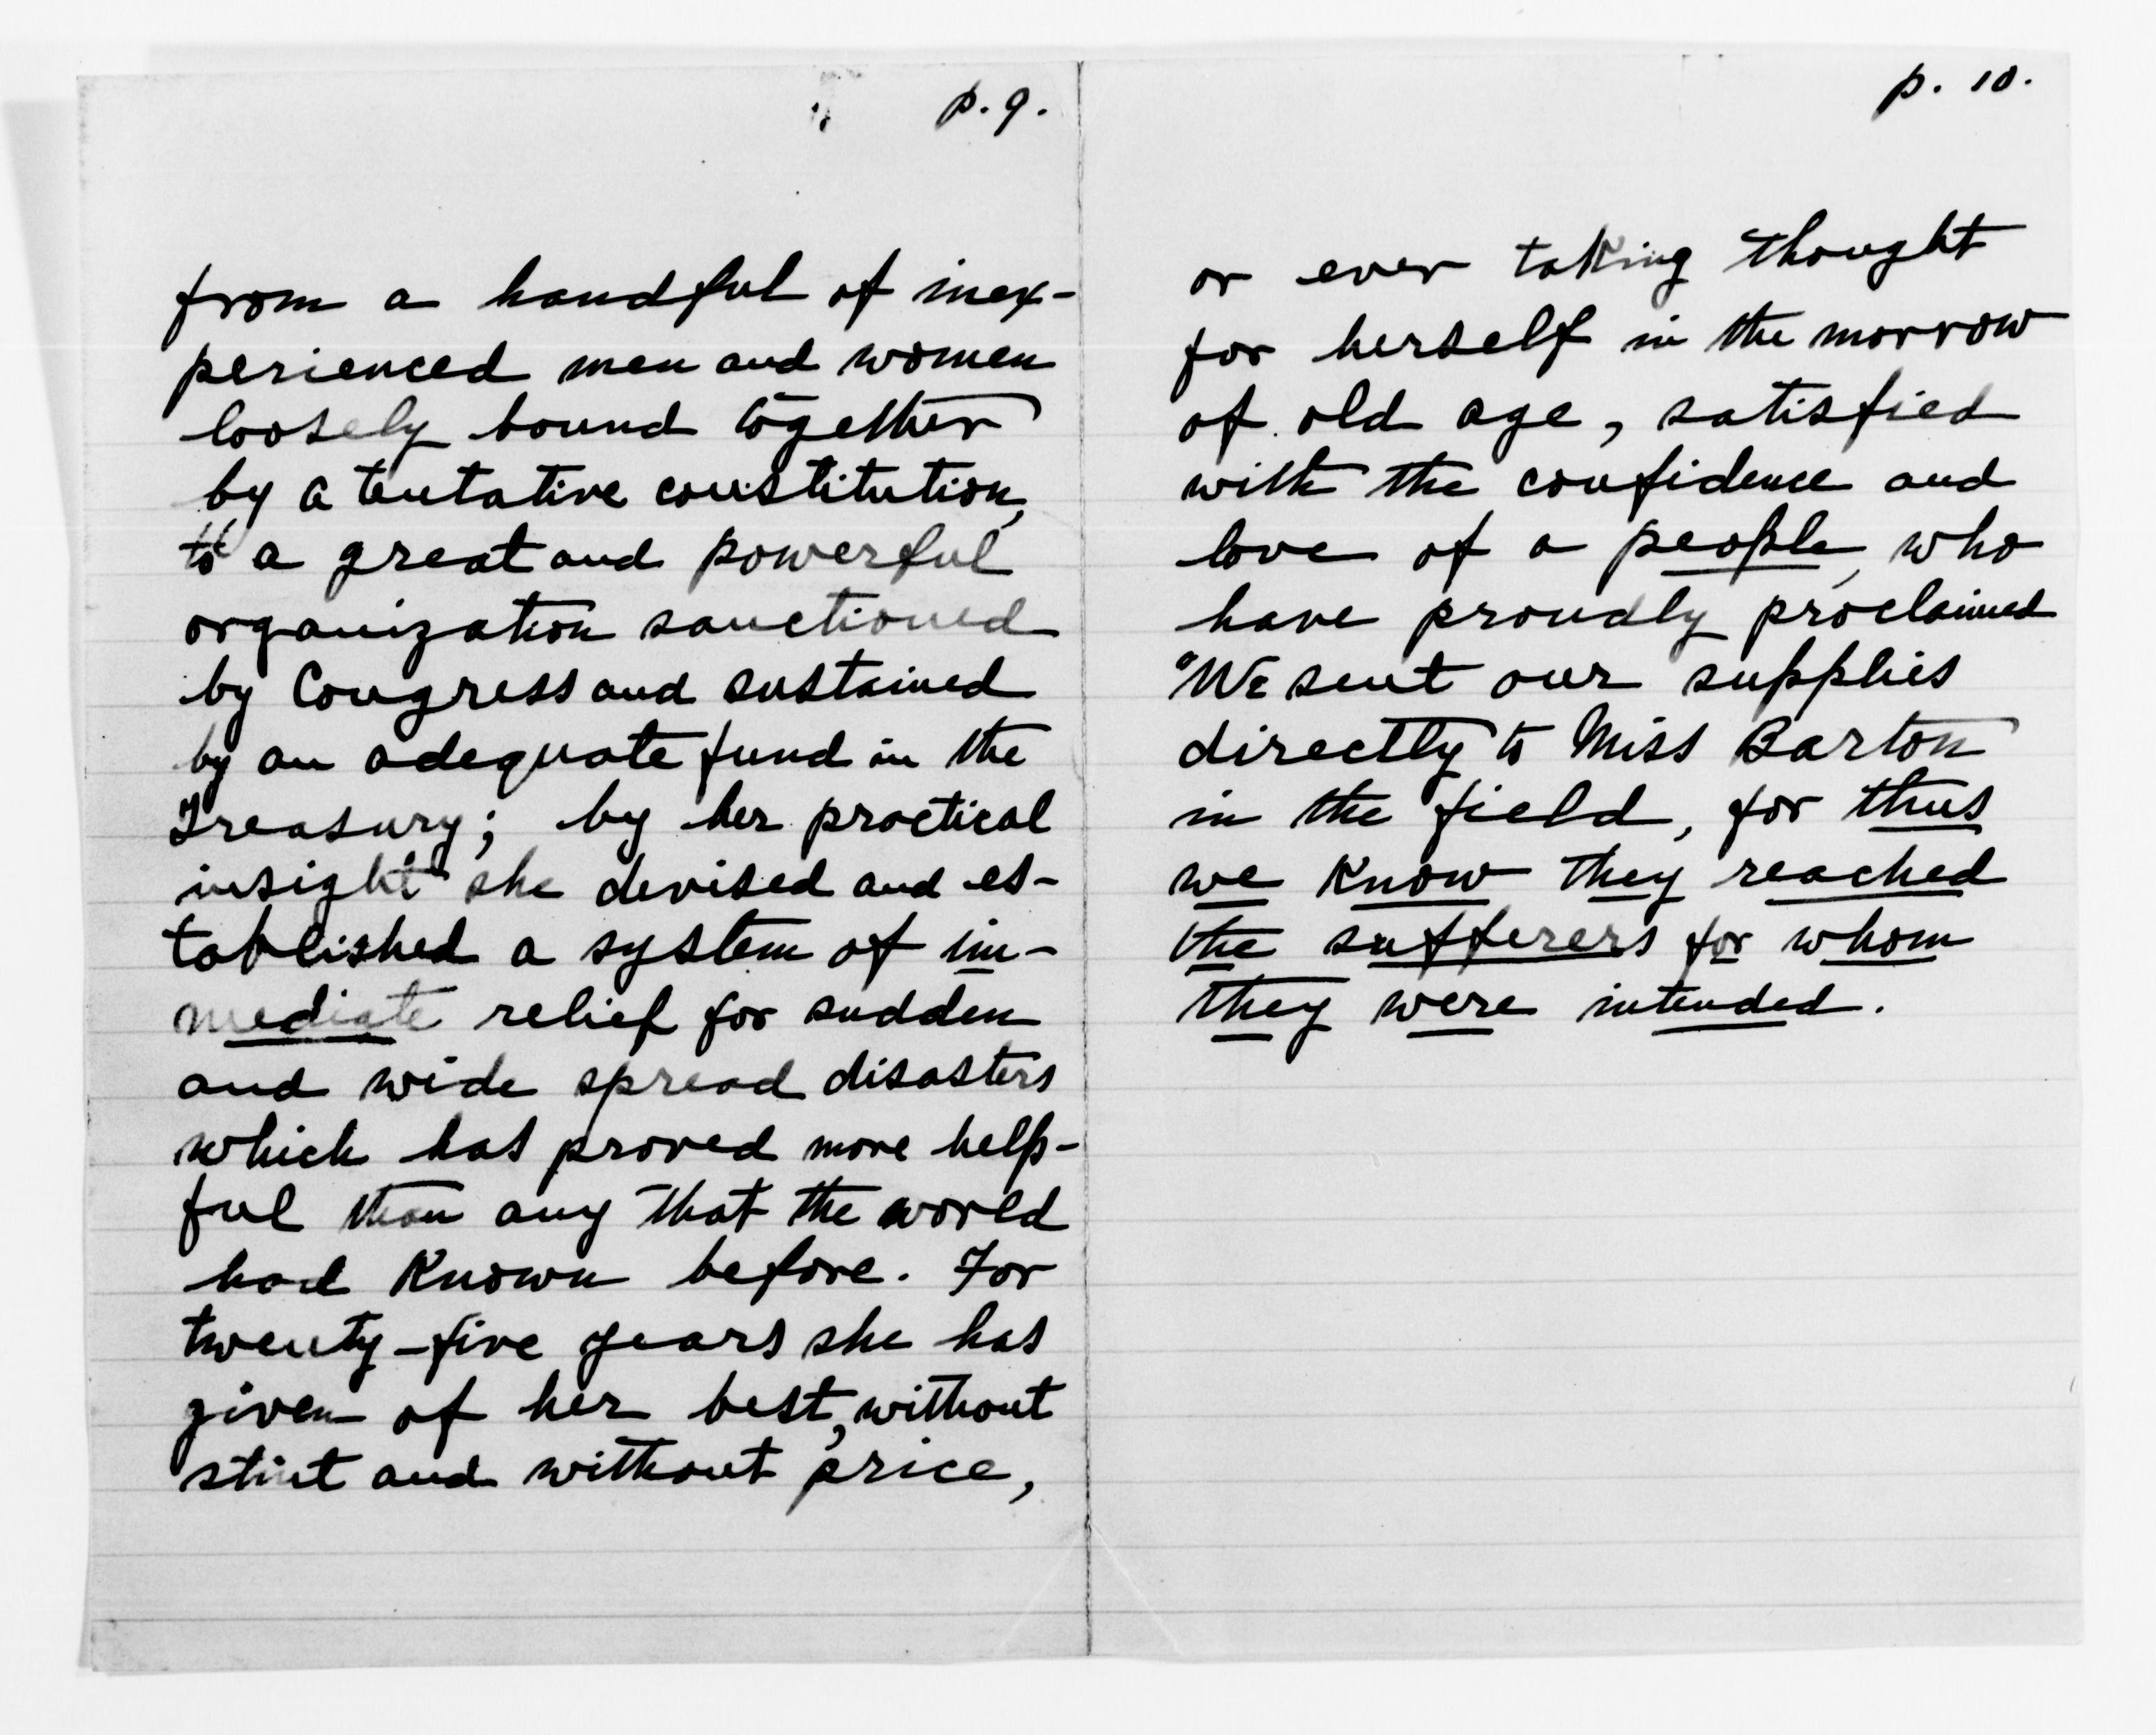 p. 9.
from a handful of inex-
perienced men and women
loosely bound together
by a tentative constitution,
to a great and powerful
organization sanctioned
by Congress and sustained
by an adequate fund in the
Treasury; by her practical
insight she devised and es-
tablished a system of im-
mediate relief for sudden
and wide spread disasters
which has proved more help-
ful than any that the world
had known before. For
twenty-five years she has
given of her best, without
stint and without price,
p. 10.
or ever taking thought
for herself in the morrow
of old age, satisfied
with the confidence and
love of a people, who
have proudly proclaimed
"We sent our supplies
directly to Miss Barton
in the field, for thus
we know they reached
the sufferers for whom
they were intended.